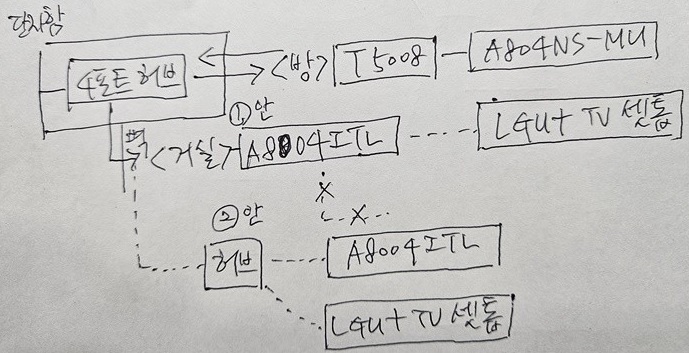 단자함
4포트 허브
<방> T5008 A804NS-MU
①안
벽 <거실> A8004ITL LGU+ TV 셋톱
②안
허브 A8004ITL
LGU+ TV 셋톱